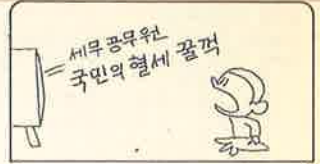 세무공무원
국민의 혈세 꿀꺽